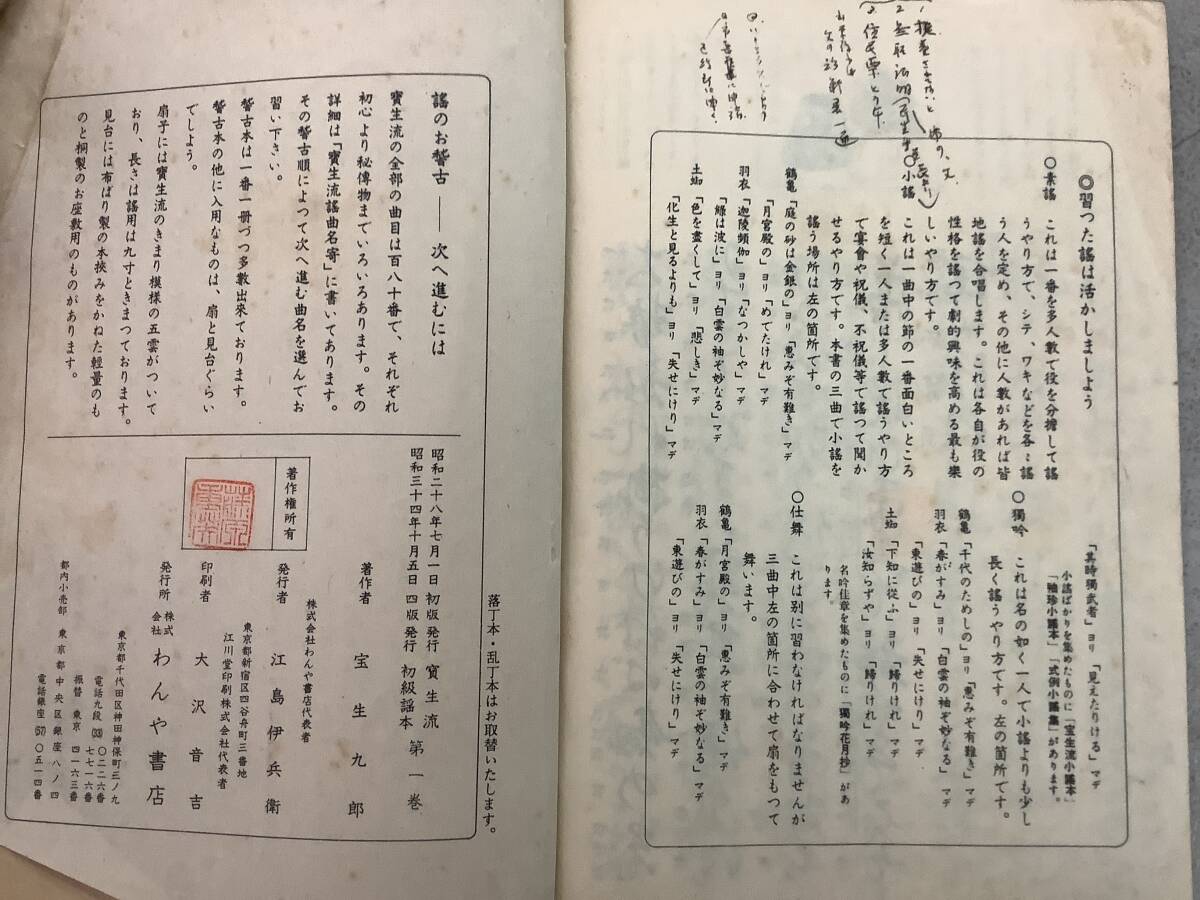 ◎習つた謡は活かしましよう
○素謡
これは一番を多人數で役を分擔して謡
うやり方で、シテ、ワキなどを各〻謡
う人を定め、その他に人數があれば皆
地謡を合唱します。これは各自が役の
性格を謡つて劇的興味を高める最も樂
しいやり方です。
○小謡
これは一曲中の節の一番面白いところ
を短く一人または多人數で謡うやり方
で宴會や祝儀、不祝儀等で謡つて聞か
せるやり方です。本書の三曲で小謡を
謡う場所は左の箇所です。
鶴亀「庭の砂は金銀の」ヨリ「惠みぞ有難き」マデ
「月宮殿の」ヨリ「めでたけれ」マデ
羽衣「迦陵頻伽」ヨリ「なつかしや」マデ
「緑は波に」ヨリ「白雲の袖ぞ妙なる」マデ
土蜘「色を盡くして」ヨリ「悲しき」マデ
「化生と見るよりも」ヨリ「失せにけり」マデ
「其時獨武者」ヨリ「見えたりける」マデ
小謡ばかりを集めたものに「宝生流小謡本」
「袖珍小謡本」「式例小謡集」があります。
○獨吟
これは名の如く一人で小謡よりも少し
長く謡うやり方です。左の箇所です。
鶴亀「千代のためしの」ヨリ「惠みぞ有難き」マデ
羽衣「春がすみ」ヨリ「白雲の袖ぞ妙なる」マデ
「東遊びの」ヨリ「失せにけり」マデ
土蜘「下知に從ふ」ヨリ「歸りけれ」マデ
「汝知らずや」ヨリ「歸りけれ」マデ
名吟佳章を集めたものに「獨吟花月抄」があ
ります。
○仕舞
これは別に習わなければなりませんが
三曲中左の箇所に合わせて扇をもつて
舞います。
鶴亀「月宮殿の」ヨリ「惠みぞ有難き」マデ
羽衣「春がすみ」ヨリ「白雲の袖ぞ妙なる」マデ
「東遊びの」ヨリ「失せにけり」マデ
謡のお稽古 ―― 次へ進むには
寶生流の全部の曲目は百八十番で、それぞれ
初心より秘傳物までいろいろあります。その
詳細は「寶生流謡曲名寄」に書いてあります。
その稽古順によつて次へ進む曲名を選んでお
習い下さい。
稽古本は一番一冊づつ多數出來ております。
稽古本の他に入用なものは、扇と見台ぐらい
でしよう。
扇子には寶生流のきまり模様の五雲がついて
おり、長さは謡用は九寸ときまつております。
見台には布ばり製の本挾みをかねた輕量のも
のと桐製のお座敷用のものがあります。
落丁本・乱丁本はお取替いたします。
昭和二十八年七月一日 初版発行
昭和三十四年十月五日 四版発行
寶生流
初級謡本 第一巻
著作者 宝生九郎
株式会社わんや書店代表者
発行者 江島伊兵衛
東京都新宿区四谷舟町三番地
江川堂印刷株式会社代表者
印刷者 大沢音吉
発行所 株式会社 わんや書店
東京都千代田区神田神保町三ノ九
電話九段(33)〇二二六番
七七一六番
振替 東京 四一六三番
都内小売部 東京都中央区銀座八ノ四
電話銀座(57)〇五一四番
著作権所有